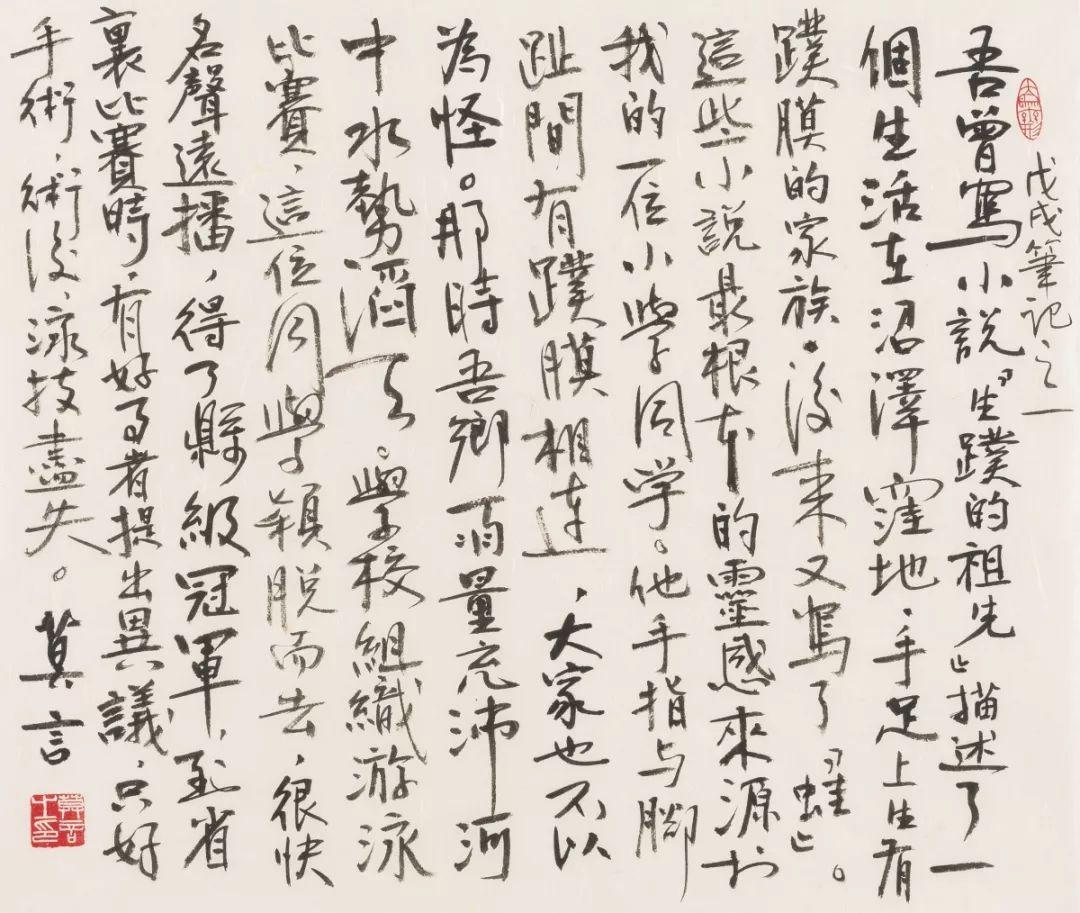 戊戌筆記之一
吾曾寫小說『生蹼的祖先』描述了一
個生活在沼澤窪地、手足上生有
蹼膜的家族。後来又寫了『蛙』。
這些小說最根本的靈感來源於
我的一位小學同学。他手指与腳
趾間有蹼膜相連、大家也不以
為怪。那時吾鄉雨量充沛河
中水勢滔天。學校組織游泳
比賽、這位同學穎脱而去,很快
名聲遠播,得了縣級冠軍、到省
裏比賽時,有好事者提出異議,只好
手術、術後泳技盡失。莫言